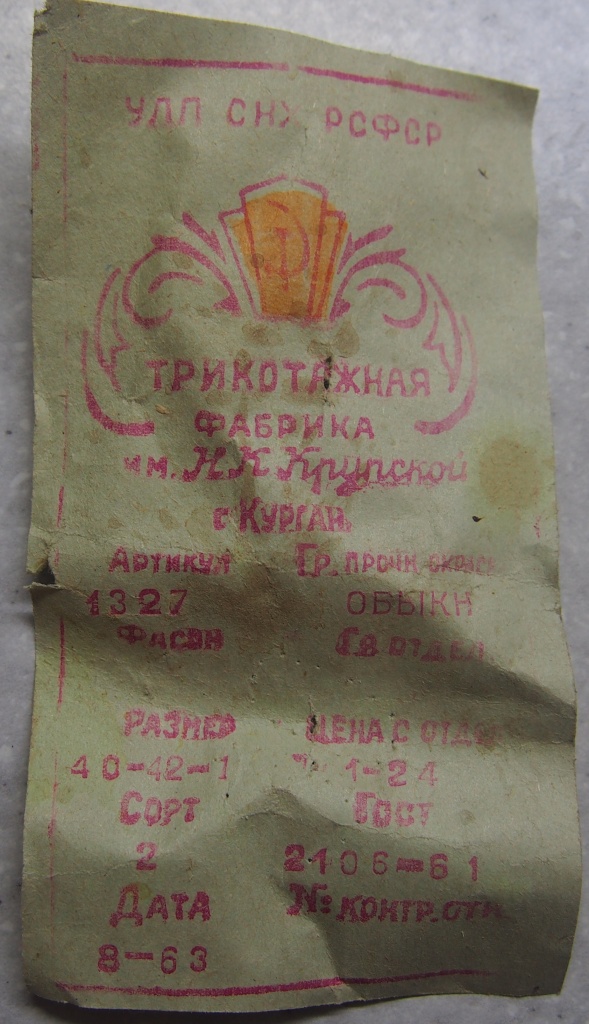 УЛП СНХ РСФСР
ТРИКОТАЖНАЯ
ФАБРИКА
им. Н К Крупской
г Курган.
Артикул Гр. прочн. окраск
1327 ОБЫКН
Фасон Св отдел
Размер Цена с отдел
40-42-1 1-24
Сорт Гост
2 2106-61
Дата № контр. отк
8-63